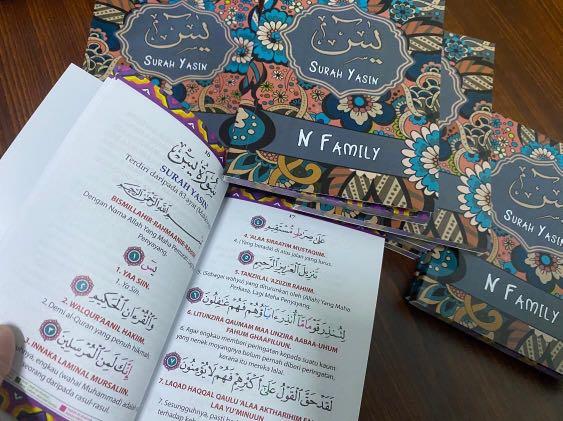 يس
SURAH YASIN
يس
SURAH YASIN
N FAMILY
يس
SURAH YASIN
N FAMILY
سورة يس
SURAH YASIN
Terdiri daripada 83 ayat
BISMILLAHIR-RAHMAANIR-RAHIIM
Dengan Nama Allah Yang Maha Pemurah
Penyayang.
يس
1. YAA SIIN.
1. Ya Sin.
وَالْقُرْءَانِ الْحَكِيمِ
2. WALQUR'AANIL HAKIIM.
2. Demi al-Quran yang penuh hikmah.
إِنَّكَ لَمِنَ الْمُرْسَلِينَ
3. INNAKA LAMINAL MURSALIIN.
engkau (wahai Muhammad) adalah
seorang daripada rasul-rasul.
عَلَىٰ صِرَاطٍ مُسْتَقِيمٍ
4. 'ALAA SIRAATIM MUSTAQIIM.
4. (Yang berada) di atas jalan yang lurus.
تَنْزِيلَ الْعَزِيزِ الرَّحِيمِ
5. TANZIILAL 'AZIIZIR RAHIIM.
5. (Sebagai wahyu) yang diturunkan oleh (Allah) Yang Maha
Perkasa, Lagi Maha Penyayang.
لِتُنْذِرَ قَوْمًا مَا أُنْذِرَ ءَابَاؤُهُمْ فَهُمْ غَافِلُونَ
6. LITUNZIRA QAUMAM MAA UNZIRA AABAA-UHUM
FAHUM GHAAFILUUN.
6. Agar engkau memberi peringatan kepada suatu kaum
yang nenek moyangnya belum pernah diberi peringatan,
kerana itu mereka lalai.
لَقَدْ حَقَّ الْقَوْلُ عَلَىٰ أَكْثَرِهِمْ فَهُمْ لَا يُؤْمِنُونَ
7. LAQAD HAQQAL QAULU 'ALAA AKTHARIHIM FA
LAA YU'MINUUN
7. Sesungguhnya, pasti
terhadap